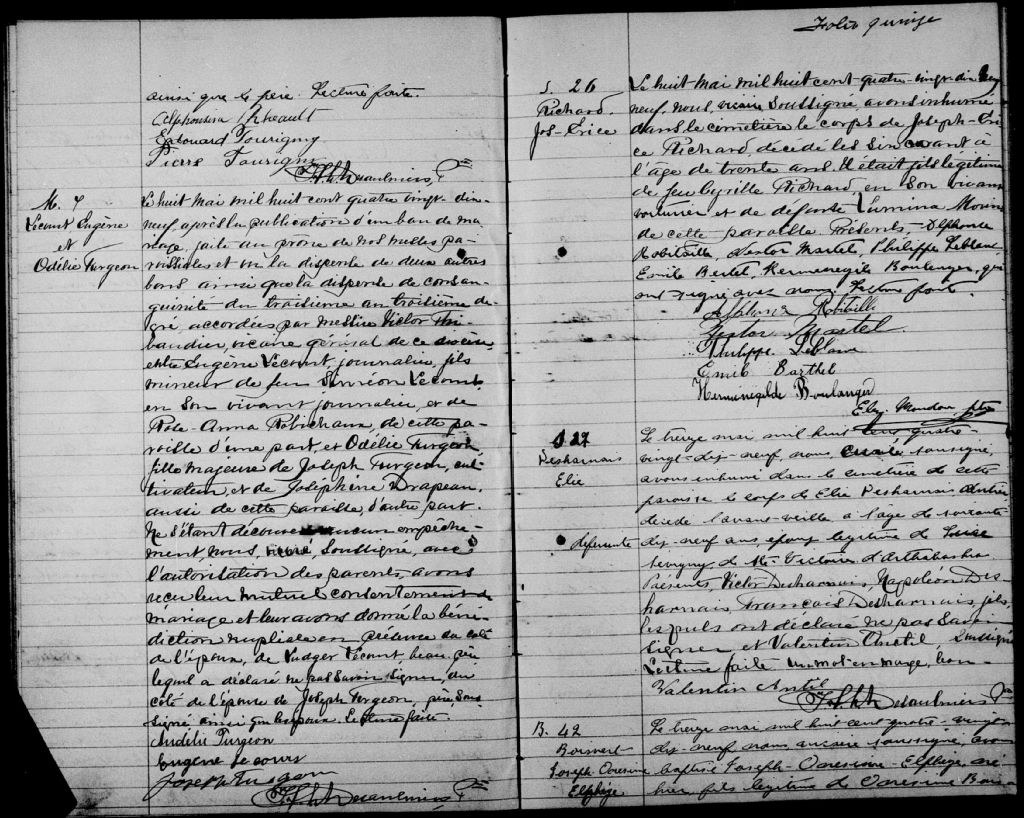 ainsi que le père. Lecture faite.
Alphonsina Rheault
Edouard Tourigny
Pierre Tourigny
Desaulniers, Ptre
M. 7
Lecourt Eugène
et
Odélie Turgeon
Le huit mai mil huit cent quatre vingt dix-
neuf après la publication d'un ban de ma-
riage, faite au prône de nos messes pa-
roissiales et vu la dispense de deux autres
bans ainsi que la dispense de consan-
guinité du troisième au troisième de-
gré, accordées par messire Victor Thi-
baudier, vicaire général de ce diocèse,
entre Eugène Lecourt, journalier, fils
mineur de feu Siméon Lecourt,
en son vivant journalier, et de
Rose-Anna Robichaux, de cette pa-
roisse d'une part, et Odélie Turgeon,
fille majeure de Joseph Turgeon, cul-
tivateur, et de Joséphine Drapeau,
aussi de cette paroisse, d'autre part.
Ne s'étant découvert aucun empêche-
ment, nous, soussigné, avec
l'autorisation des parents, avons
reçu leur mutuel consentement de
mariage et leur avons donné la béné-
diction nuptiale en présence du côté
de l'époux, de Ludger Lecourt, beau-père
lequel a déclaré ne pas savoir signer, du
côté de l'épouse de Joseph Turgeon, père sous-
signé ainsi que les époux. Lecture faite.
Audélie Turgeon
Eugène Lecours
Joseph Turgeon
Desaulniers Ptre
Folio quinze
S. 26
Richard,
Jos-Érice
Le huit mai mil huit cent quatre-vingt-dix
neuf, nous, vicaire soussigné, avons inhumé
dans le cimetière le corps de Joseph-Éri-
ce Richard, décédé le six courant à
l'âge de trente ans. Il était fils légitime
de feu Cyrille Richard, en son vivant
voiturier et de défunte Lumina Morin
de cette paroisse. Présents, Alphonse
Robitaille, Nestor Martel, Philippe Leblanc,
Emile Bertel, Herménégile Boulanger, qui
ont signé avec nous. Lecture faite.
Alphonse Robitaille
Nestor Martel
Philippe Leblanc
Emile Barthel
Hermenegilde Boulanger
Elz. Mondou ptre
S. 27
Desharnais
Elie
Le treize mai mil huit cent quatre-
vingt-dix-neuf nous curé soussigné,
avons inhumé dans le cimetière de cette
paroisse le corps de Elie Desharnais rentier
décédé l'avant-veille à l'âge de soixante
défunte
dix-neuf ans époux légitime de Luise
Sevigny de Ste Victoire d'Arthabaska.
Présents, Victor Desharnais, Napoléon Des-
harnais, François Desharnais, fils,
lesquels ont déclaré ne pas savoir
signer et Valentin Anctil, soussigné
Lecture faite un mot en marge, bon
Valentin Antil
Desaulniers Ptre
B. 42
Boisvert
Joseph-Onesime
Elphège
Le treize mai mil huit cent quatre-vingt
dix-neuf nous vicaire soussigné, avons
baptisé Joseph-Onesime-Elphège, né
hier, fils légitime de Onesime Bois-